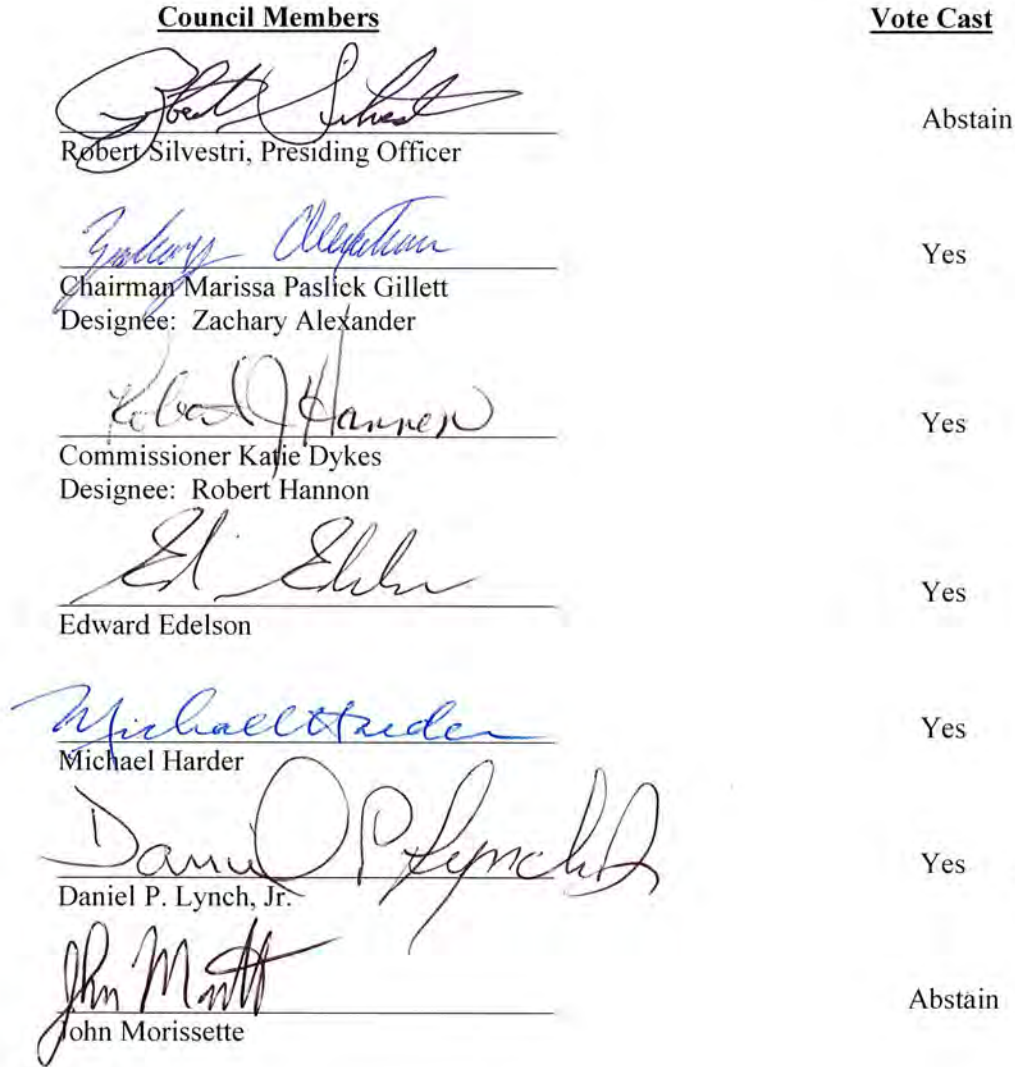 Council Members Vote Cast
Robert Silvestri Abstain
Robert Silvestri, Presiding Officer
Zachary Alexander Yes
Chairman Marissa Paslick Gillett
Designee: Zachary Alexander
Robert J Hannon Yes
Commissioner Katie Dykes
Designee: Robert Hannon
Ed Edelson Yes
Edward Edelson
Michael Harder Yes
Michael Harder
Daniel P Lynch Jr Yes
Daniel P. Lynch, Jr.
John Morissette Abstain
John Morissette